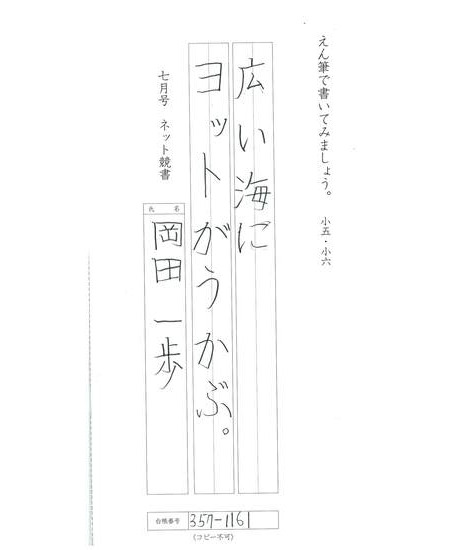 えん筆で書いてみましょう。 小五・小六
広い海に
ヨットがうかぶ。
七月号 ネット競書
氏名
岡田一歩
台帳番号 357-1161
(コピー不可)